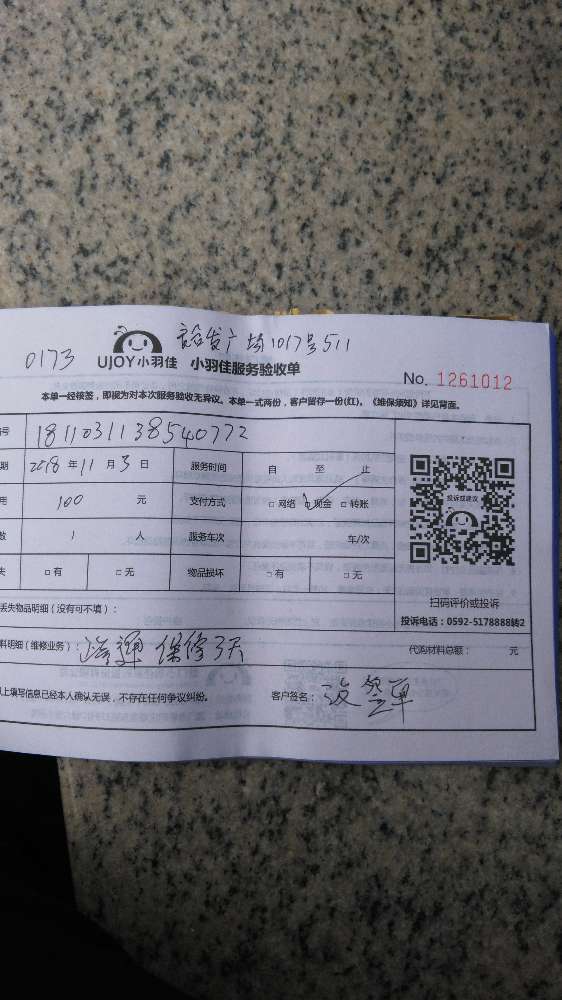 发广场1017号511
0173 UJOY小羽佳 小羽佳服务验收单
No. 1261012
本单一经核签，即视为对本次服务验收无异议。本单一式两份，客户留存一份(红)。《维保须知》详见背面。
号 1811031138540772
期 2018年11月3日 服务时间 自 至 止
用 100 元 支付方式 □网络 □现金 □转账
数 1 人 服务车次 车/次
失 □有 □无 物品损坏 □有 □无
投诉或建议
扫码评价或投诉
投诉电话：0592-5178888转2
丢失物品明细（没有可不填）：
料明细（维修业务）： 保修3天 代购材料总额： 元
上填写信息已经本人确认无误，不存在任何争议纠纷。 客户签名： 没签单